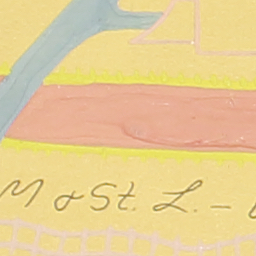 M & St. L. –